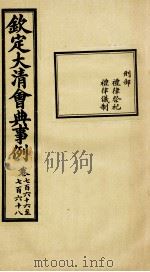 刑部
禮律祭祀
禮律儀制
欽定大清會典事例
卷七百六十六至
七百六十八